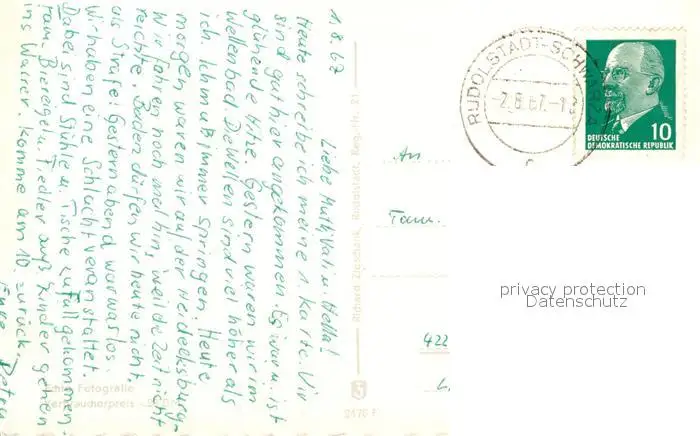 1.8.67
Liebe Mutti, Vati u. Hella!
Heute schreibe ich meine 1. Karte. Wir
sind gut hier angekommen. Es war u. ist
glühende Hitze. Gestern waren wir im
Wellenbad. Die Wellen sind viel höher als
ich. Ich muß immer springen. Heute
morgen waren wir auf der Heidecksburg.
Wir fahren noch mal hin, weil die Zeit nicht
reichte. Baden dürfen wir heute nicht
als Strafe. Gestern abend war was los.
Wir haben eine Schlacht veranstaltet.
Dabei sind Stühle u. Tische zu Fall gekommen.
Fam. u. Fiedler auß. Kinder gehen
ins Wasser. Komme am 10. zurück.
Euer Peter
An
Fam.
422
RUDOLSTADT-SCHWARZA
-2.8.67.-1
10
DEUTSCHE
DEMOKRATISCHE REPUBLIK
Richard Zieschank, Rudolstadt, Reg.-Nr. 21
Echte Fotografie
Verbraucherpreis
2476 F
privacy protection
Datenschutz